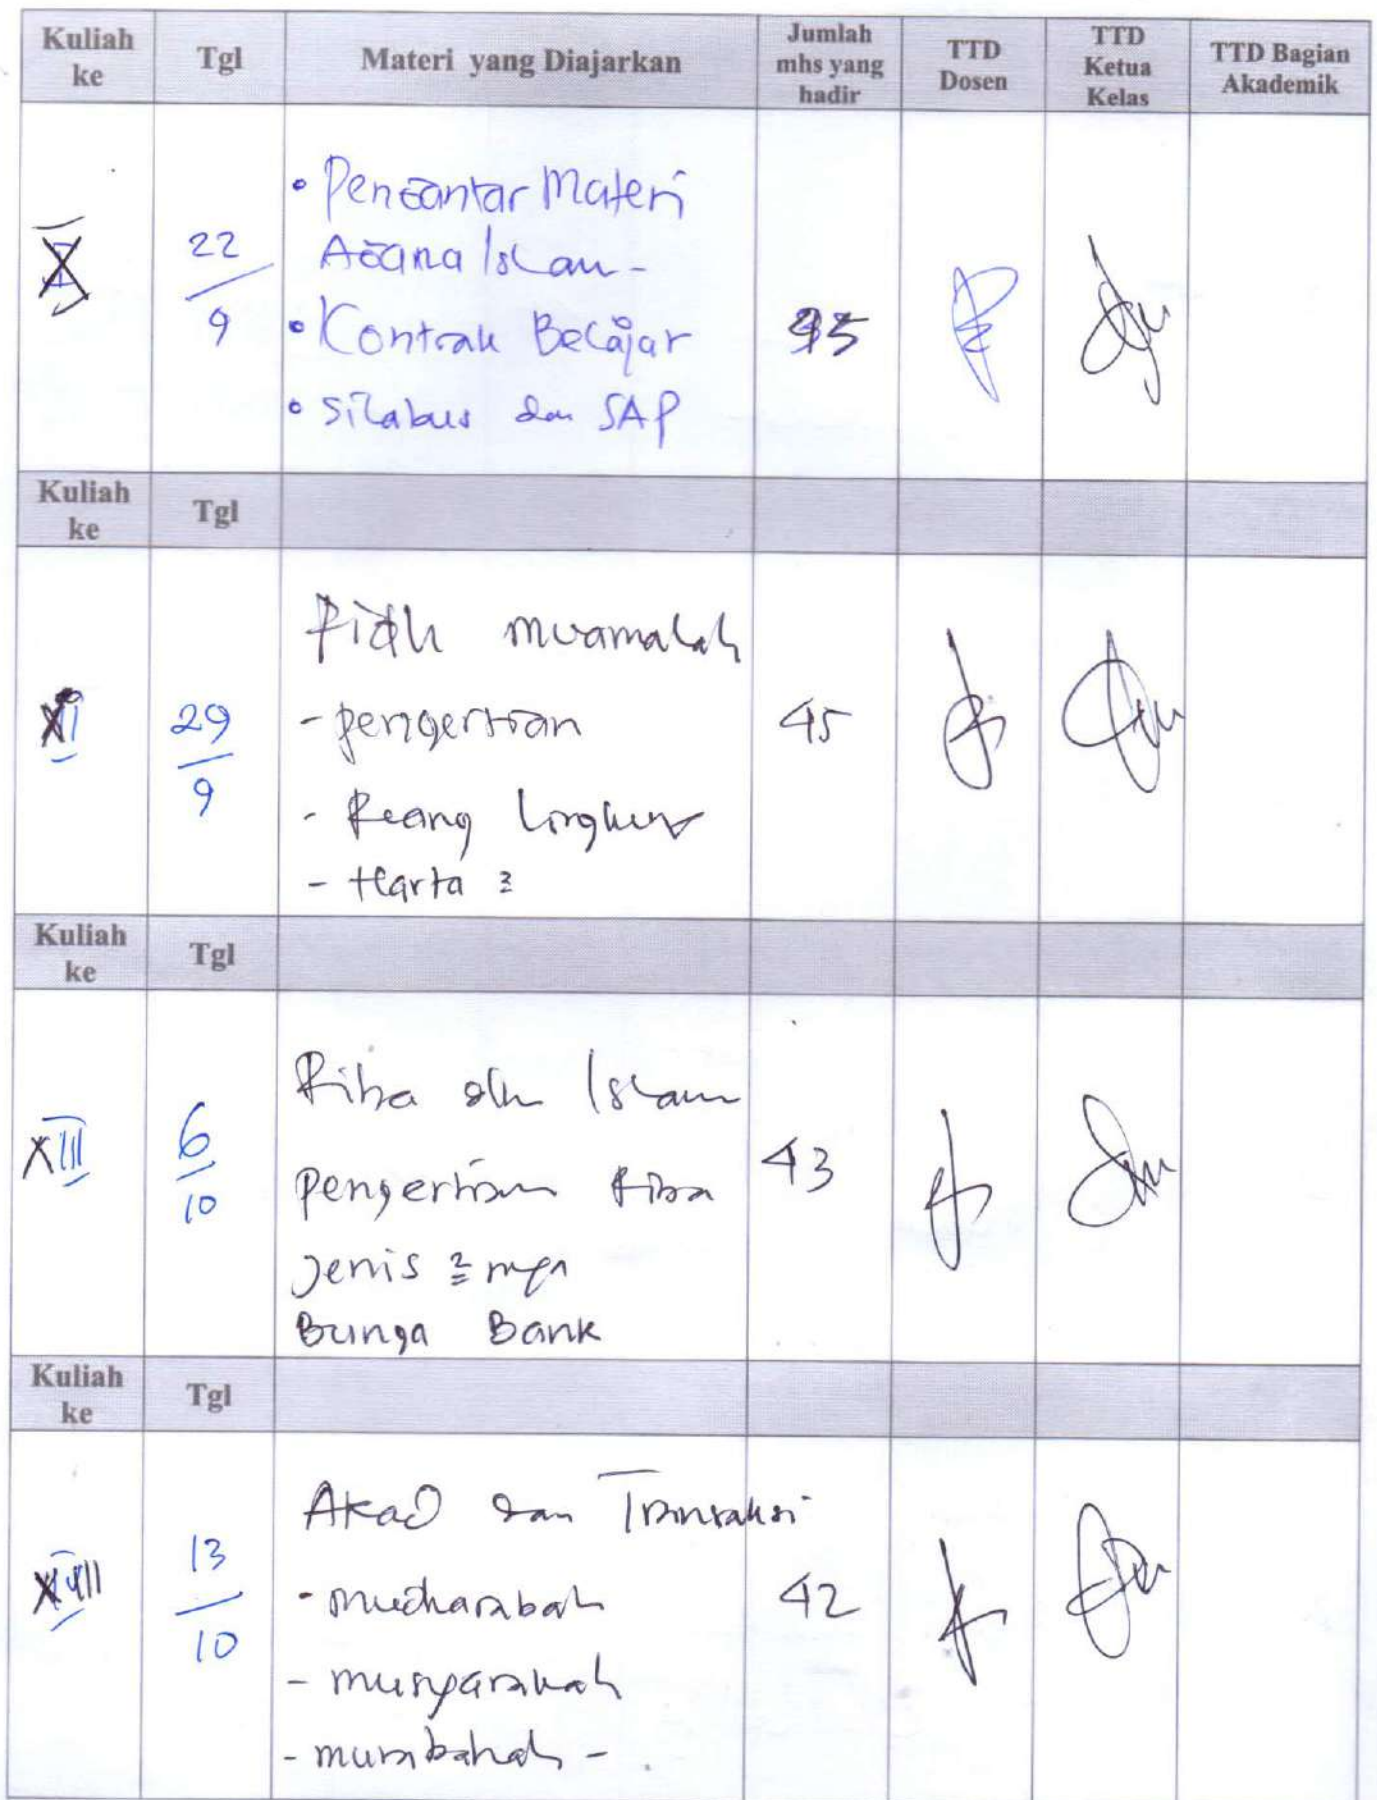 Kuliah ke Tgl Materi yang Diajarkan Jumlah mhs yang hadir TTD Dosen TTD Ketua Kelas TTD Bagian Akademik
22/9
• Pengantar Materi
Agama Islam -
• Kontrak Belajar
45
• Silabus dan SAP
Kuliah ke Tgl
29/9
Fiqh muamalah
- pengertian
45
- Ruang Lingkup
- Harta 2
Kuliah ke Tgl
XIII
6/10
Riba dlm Islam
43
pengertian Riba
Jenis 2 nya
Bunga Bank
Kuliah ke Tgl
13/10
Akad dan Transaksi
- mudharabah
42
- musyarakah
- murabahah -